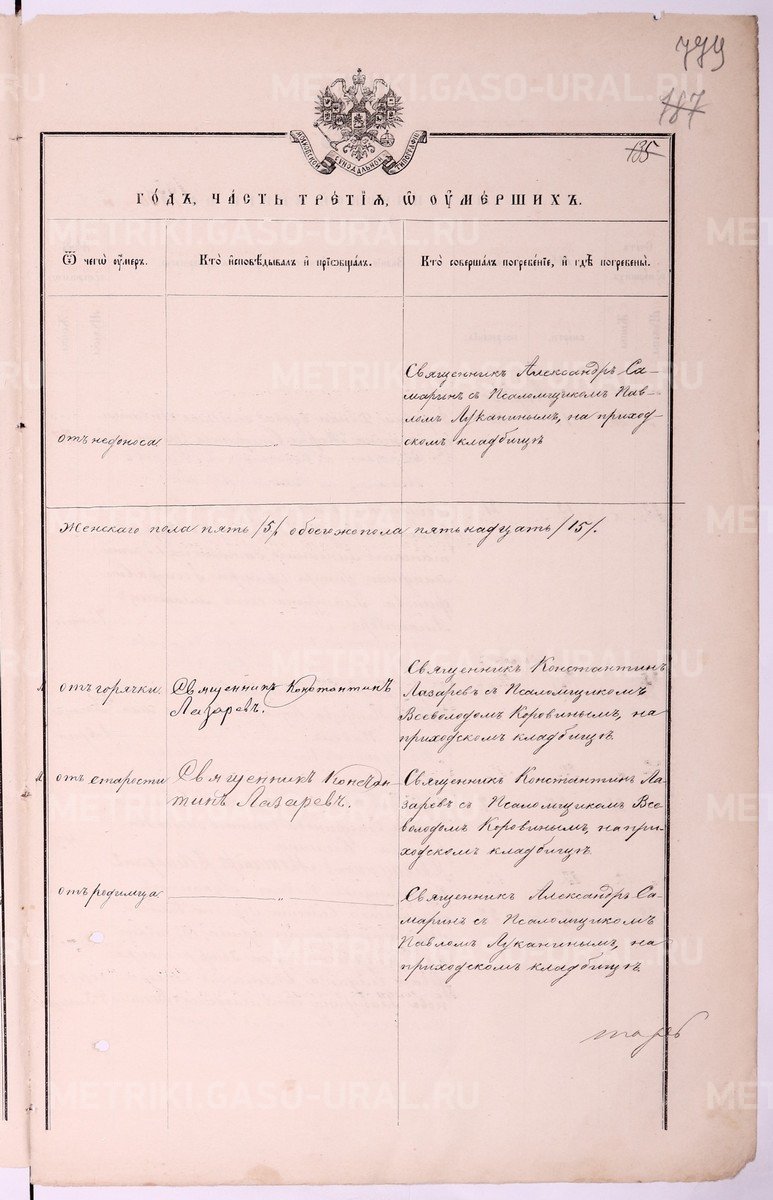 779
187
135
МОСКОВСКОЙ СѴНОДАЛЬНОЙ ТИПОГРАФІИ
ГО́ДЪ, ЧА́СТЬ ТРЕ́ТІѦ, Ѡ҆ ОУ҆МЕ́РШИХЪ.
Ѿ чегѡ̀ оу҆́меръ.
Кто̀ и҆сповѣ́дывалъ и҆ приѡбща́лъ.
Кто̀ соверша́лъ погребе́нїе, и҆ гдѣ̀ погребены̀.
отъ недоноса
Священникъ Александръ Са-
маринъ съ Псаломщикомъ Пав-
ломъ Лукининымъ, на приход-
скомъ кладбищѣ
Женскаго пола пять /5/ обоего жо пола пятьнадцать /15/.
отъ горячки.
Священникъ Константинъ
Лазаревъ.
Священникъ Константинъ
Лазаревъ съ Псаломщикомъ
Всеволодомъ Коровинымъ, на
приходскомъ кладбищѣ.
отъ старости
Священникъ Констан
тинъ Лазаревъ.
Священникъ Константинъ Ла
заревъ съ Псаломщикомъ Все
володомъ Коровинымъ, на при-
ходскомъ кладбищѣ.
отъ родимца
"
Священникъ Александръ Са-
маринъ съ Псаломщикомъ
Павломъ Лукининымъ, на
приходскомъ кладбищѣ.
METRIKI.GASO-URAL.RU